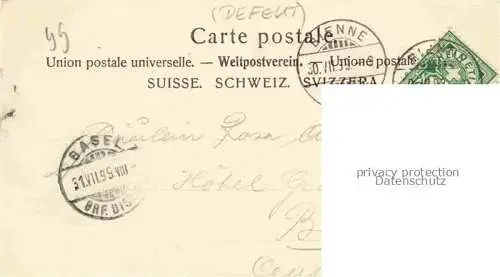 (DEFEKT)
99
Carte postale
Union postale universelle. — Weltpostverein. — Unione postale
SUISSE. SCHWEIZ. SVIZZERA
BIENNE
30.VII.99.-9
BASEL
31.VII.99.VIII
BRF. DIS
Fräulein Rosa
Hôtel
privacy protection
Datenschutz